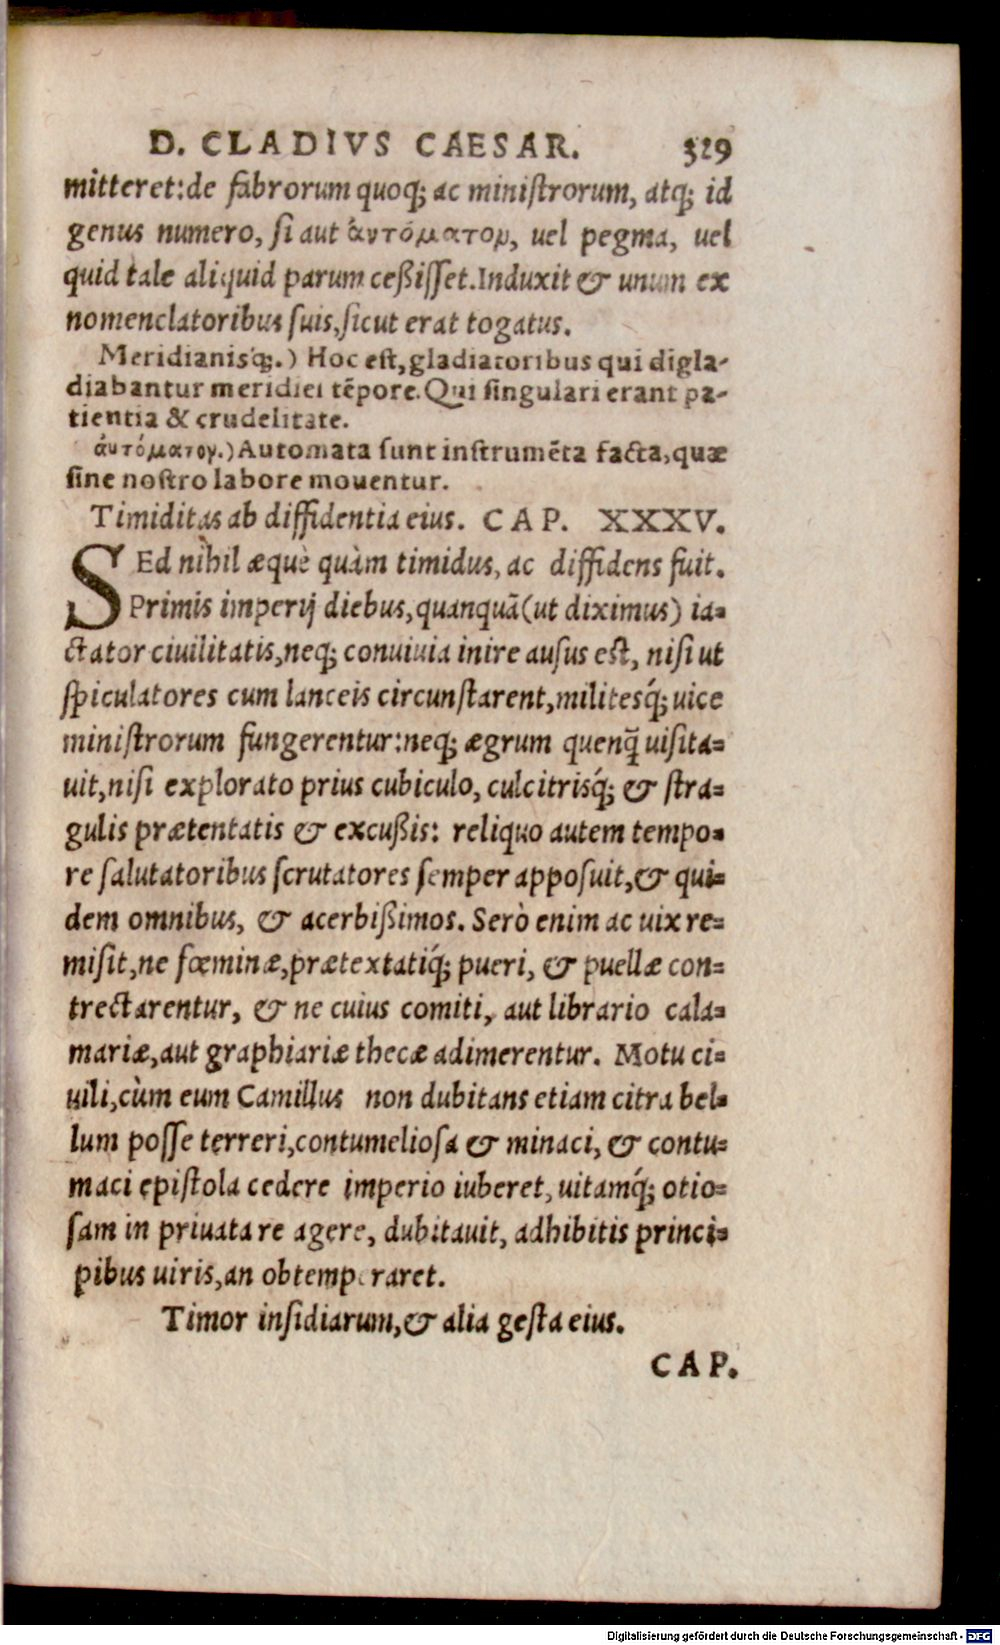 D. CLADIVS CAESAR. 329
mitteret: de fabrorum quoq; ac ministrorum, atq; id
genus numero, si aut ἀυτόματον, uel pegma, uel
quid tale aliquid parum ceßisset. Induxit & unum ex
nomenclatoribus suis, sicut erat togatus.
Meridianisq́;.) Hoc est, gladiatoribus qui digla-
diabantur meridiei tẽpore. Qui singulari erant pa-
tientia & crudelitate.
ἀυτόματον.) Automata sunt instrumẽta facta, quæ
sine nostro labore mouentur.
Timiditas ab diffidentia eius. CAP. XXXV.
SEd nihil æquè quàm timidus, ac diffidens fuit.
Primis imperij diebus, quanquã (ut diximus) ia-
ctator ciuilitatis, neq; conuiuia inire ausus est, nisi ut
spiculatores cum lanceis circunstarent, militesq́; uice
ministrorum fungerentur: neq; ægrum quenq̃ uisita-
uit, nisi explorato prius cubiculo, culcitrisq́; & stra-
gulis prætentatis & excußis: reliquo autem tempo-
re salutatoribus scrutatores semper apposuit, & qui-
dem omnibus, & acerbißimos. Serò enim ac uix re-
misit, ne fœminæ, prætextatiq́; pueri, & puellæ con-
trectarentur, & ne cuius comiti, aut librario cala-
mariæ, aut graphiariæ thecæ adimerentur. Motu ci-
uili, cùm eum Camillus non dubitans etiam citra bel-
lum posse terreri, contumeliosa & minaci, & contu-
maci epistola cedere imperio iuberet, uitamq́; otio-
sam in priuata re agere, dubitauit, adhibitis princi-
pibus uiris, an obtemperaret.
Timor insidiarum, & alia gesta eius.
CAP.
Digitalisierung gefördert durch die Deutsche Forschungsgemeinschaft - DFG